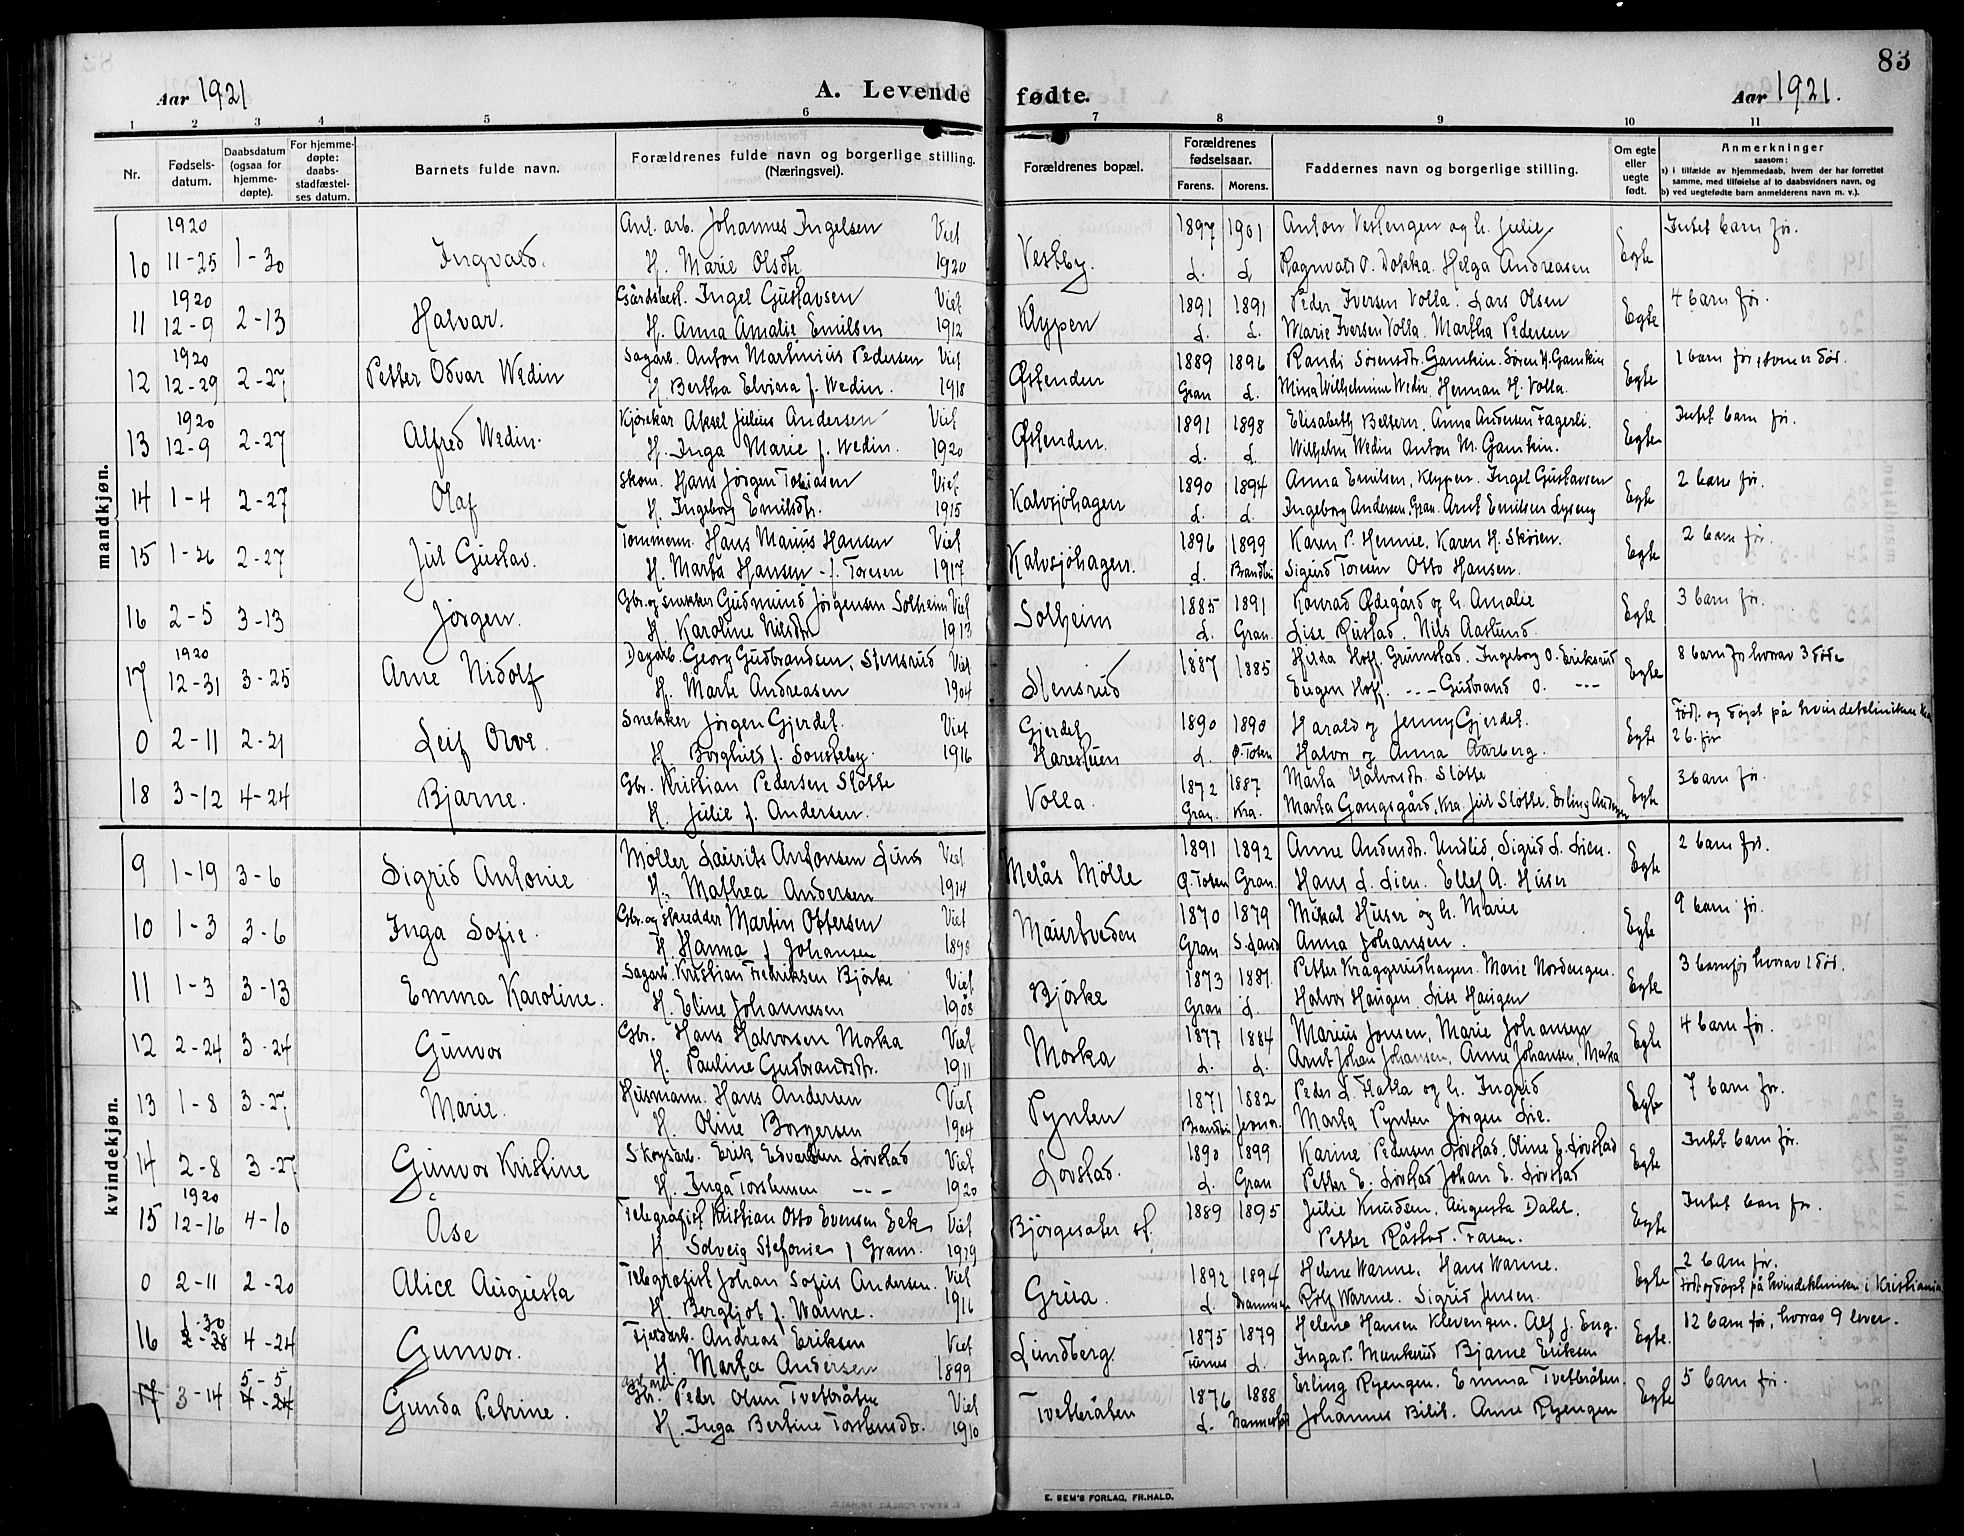 83
Aar 1921
A. Levende fødte.
Aar 1921.
1 2 3 4 5 6 7 8 9 10 11
Nr.
Fødsels-
datum.
Daabsdatum
(ogsaa for
hjemme-
døpte).
For hjemme-
døpte:
daabs-
stadfæstel-
ses datum.
Barnets fulde navn.
Forældrenes fulde navn og borgerlige stilling.
(Næringsvei).
Forældrenes bopæl.
Forældrenes
fødselsaar.
Farens. Morens.
Faddernes navn og borgerlige stilling.
Om egte
eller
uegte
født.
Anmerkninger
saasom:
a) i tilfælde av hjemmedaab, hvem der har forrettet
samme, med tilføielse af to daabsvidners navn, og
b) ved uegtefødte barn anmelderens navn m. v.).
mandkjøn.
1920 Anl. arb. Johannes Ingelsen Viet 1897 1901 Anton Vestengen og h. Julie Intet barn før.
10 11-25 1-30 Ingvald. H. Marie Olsdtr. 1920 Vestby. L. L Ragnvald O. Dokka. Helga Andreasen Egte
1920 Gårdsbest. Ingel Gustavsen Viet 1891 1891 Peder Iversen Volla. Lars Olsen 4 barn før.
11 12-9 2-13 Halvar. H. Anna Amalie Emilsen 1912 Klyppen L. L. Marie Iversen Volla. Martha Pedersen Egte
1920 Sagarb. Anton Martinius Pedersen Viet 1889 1896 Randi Sørensdtr. Gamkin. Søren H. Gamkin 1 barn før, som er død.
12 12-29 2-27 Petter Odvar Wedin H. Bertha Elvina f. Wedin. 1918 Østenden Gran L. Mina Wilhelmine Wedin, Herman H. Volla. Egte
1920 Kjørekar Aksel Julius Andersen Viet 1891 1898 Elisabeth Beltern. Anna Andersen Fagerli. Intet barn før.
13 12-9 2-27 Alfred Wedin. H. Inga Marie f. Wedin. 1920 Østenden. L. L. Wilhelm Wedin Anton M. Gamkin. Egte
Skom. Hans Jørgen Tobiasen Viet 1890 1894 Anna Emilsen, Klyppen. Ingel Gustavsen 2 barn før.
14 1-4 2-27 Olaf H. Ingeborg Emilsdtr. 1915 Kalvsjøhagen L. L. Ingeborg Andersen, Gran. Arnt Emilsen Lyseng Egte
Tømmerm. Hans Marius Hansen Viet 1896 1899 Karen P. Hennie, Karen H. Skøien. 2 barn før.
15 1-26 2-27 Jul Gustav. H. Marta Hansen - f. Toresen 1917 Kalvsjøhagen. L. Brandbu Sigurd Toresen Otto Hansen. Egte
Gbr. og snekker Gudmund Jørgensen Solheim Viet 1885 1891 Konrad Ødegård og h. Amalie 3 barn før.
16 2-5 3-13 Jørgen. H. Karoline Nilsdtr 1913 Solheim L. Gran. Lise Rustad. Nils Aaslund. Egte
1920 Dagarb. Georg Gudbrandsen, Stensrud Viet 1887 1885 Hilda Hoff, Grimstad. Ingeborg O. Eriksrud 8 barn før hvorav 3 døde
17 12-31 3-25 Arne Nidolf H. Marte Andreasen 1904 Stensrud Eugen Hoff. --- Gudbrand O. --- Egte
Snekker Jørgen Gjerdet. Viet Gjerdet 1890 1890 Harald og Jenny Gjerdet. Født og døpt på kvindeklinikken Kra
0 2-11 2-21 Leif Orve. H. Borghild f. Sønsteby. 1916 Harestuen L. Ø. Toten Halvor og Anna Aarberg. Egte 2 b. før
Gbr. Kristian Pedersen Slötte 1872 1887 Marta Halvorsdtr. Slötte 3 barn før.
18 3-12 4-24 Bjarne. H. Julie f. Andersen. Volla. Gran. Kra. Marta Gangsgård, Kra. Jul Slötte. Erling Andersen Egte
kvindekjøn.
Møller Laurits Antonsen Lund Viet 1891 1892 Anne Andersdtr. Undlid, Sigrid L. Lien. 2 barn før.
9 1-19 3-6 Sigrid Antonie H. Mathea Andersen 1914 Melås Mölle Ø. Toten Gran. Hans L. Lien. Ellef A. Huser Egte
Gbr. og skredder Martin Ottersen Viet 1870 1879 Mikal Huser og h. Marie 9 barn før.
10 1-3 3-6 Inga Sofie. H. Hanna f. Johansen 1895 Maurtveden Gran S. Land Anna Johansen. Egte
Sagarb. Kristian Fredriksen Bjørke Viet 1873 1881 Petter Kraggerudhagen. Marie Nordengen. 3 barn før hvorav 1 død.
11 1-3 3-13 Emma Karoline. H. Eline Johannesen 1908 Bjørke Gran L. Halvor Haugen. Lise Haugen Egte
Gbr. Hans Halvorsen Morka Viet 1877 1884 Marius Jonsen, Marie Johansen 4 barn før.
12 2-24 3-24 Gunvor H. Pauline Gudbrandsdtr. 1911 Morka L. L. Arnt Johan Johansen, Anne Johansen, Morka Egte
Husmann. Hans Andersen Viet 1871 1882 Peder L. Flatla og h. Ingrid 7 barn før.
13 1-8 3-27 Marie. H. Oline Borgersen 1904 Pynten Brandbu Jevnor. Marta Pynten Jørgen Lie. Egte
Skogsarb. Erik Edvardsen Løvstad Viet 1890 1899 Karine Pedersen Løvstad, Oline E. Løvstad Intet barn før.
14 2-8 3-27 Gunvor Kristine H. Inga Torstensen --- 1920 Lovstad. L. Gran Petter E. Løvstad Johan E. Løvstad Egte
1920 Telegrafist Kristian Otto Evensen Eek Viet 1889 1895 Julie Knudsen. Augusta Dahl. Intet barn før.
15 12-16 4-10 Åse H. Solveig Stefonie f Gram. 1919 Bjørgesæter st. Petter Råstad. Faren. Egte
Telegrafist Johan Sofus Andersen. Viet 1892 1894 Helene Warme, Hans Warme. 2 barn før.
0 2-11 2-20 Alice Augusta H. Bergljot f. Warme. 1916 Grua. L. Rolf Warme. Sigrid Jensen. Egte Født og døpt på kvindeklinikken i Kristiania
1-30 Fjeldarb. Andreas Eriksen Viet 1875 1879 Helene Hansen Klevengen. Alf J. Eng. 12 barn før, hvorav 9 lever.
16 2-28 4-24 Gunvor. H. Marta Andersen 1899 Lundberg. Furnes L. Inga P. Munkerud Bjarne Eriksen Egte.
5-5 Gbr. Peder Olsen Tvetbråten Viet 1876 1888 Erling Ryengen. Emma Tvetbråten. 5 barn før.
17 3-14 4-24 Gunda Petrine. H. Inga Bertine Torstensdtr. 1910 Tvetbråten L. Nannestad Johannes Bilit. Anne Ryengen Egte
E. SEM'S FORLAG, FR.HALD.